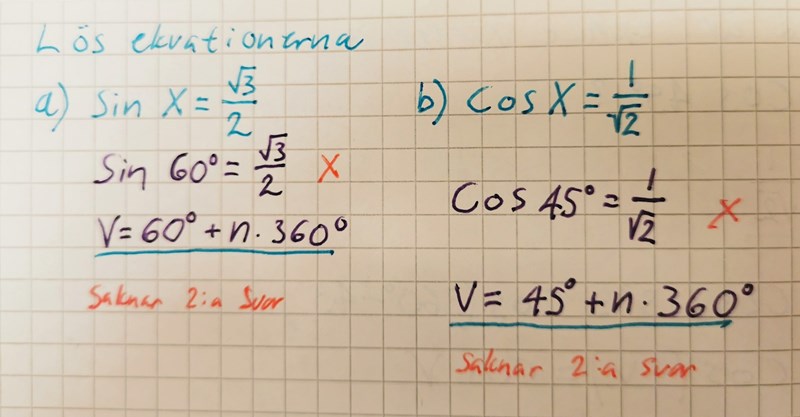 Lös ekvationerna
a) Sin X = √3/2
Sin 60° = √3/2 X
V = 60° + n · 360°
Saknar 2:a Svar
b) Cos X = 1/√2
Cos 45° = 1/√2 X
V = 45° + n · 360°
Saknar 2:a svar